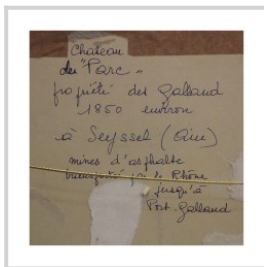 Chateau
du "Parc"
propriété des Galland
1850 environ
à Seyssel (Ain)
mines d'asphalte
par le Rhône
jusqu'à
Port-Galland